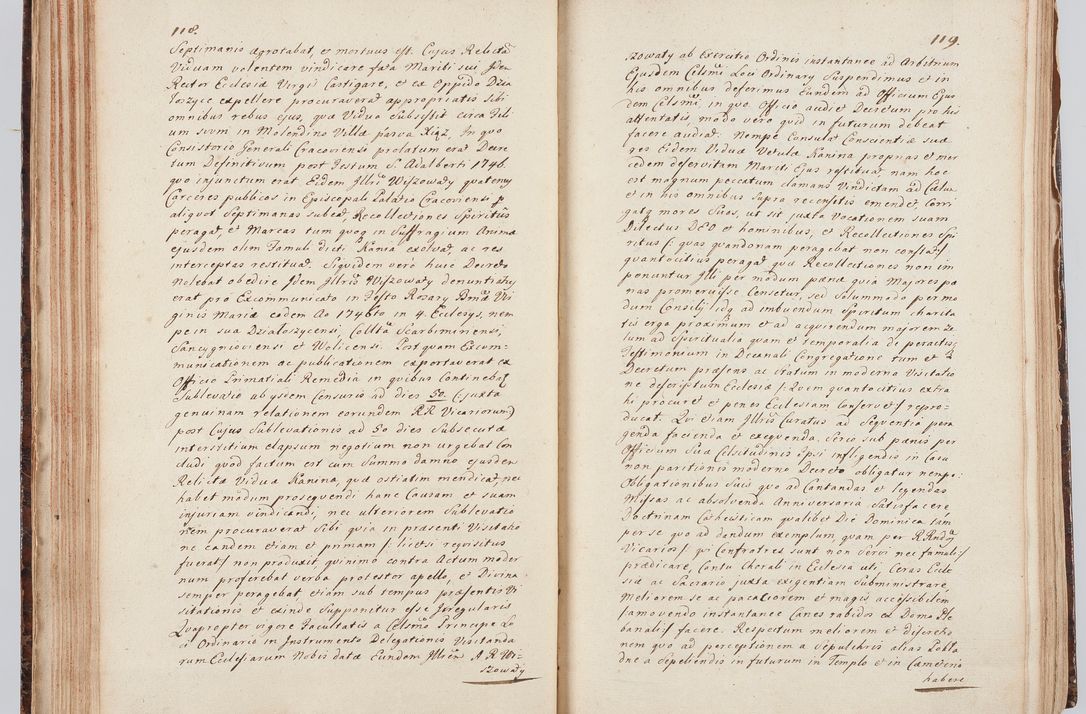 118.
Septimanis ægrotabat, et mortuus est. Cujus Relicta
Viduam valentem vindicare fata Mariti sui Idem
Rector Ecclesiæ Virgis Castigare, et ex Oppido Dzia
łoszyce expellere procuraverat appropriatis sibi
omnibus rebus ejus, quæ Vidua subsistit circa Fili
um suum in Molendino Villæ parva Xiąz, In quo
Consistorio Generali Cracoviensi prolatum erat Decre
tum Definitivum post Festum S. Adalberti 1746
quo injunctum erat Eidem Illri Wiszowaty quateny
Carceres publicos in Episcopali Palatio Cracoviensi p
aliquot Septimanas subeat, Recollectiones Spiritus
peragat, et Marcas tum quoq in Suffragium Animæ
ejusdem olim Famuli dicti Kania exolvat, ac res
interceptas restituat. Siquidem verò huic Decreto
nolebat obedire Idem Illris Wiszowaty denuntiatus
erat pro Excommunicato in Festo Rosary Bmæ Vir
ginis Mariæ eodem Ao 1746to in 4. Ecclesys, nem
pe in sua Działoszycensi, Collta Scarbimirensi,
Sancygnioviensi et Wolicensi. Post quam Excom-
municationem ac publicationem exportaverat ex
Officio Primatiali Remedia in quibus Continebat
Sublevatio ab ysdem Censuris ad dies 50. (juxta
genuinam relationem eorundem RR Vicariorum)
post Cujus Sublevationis ad 50 dies Subsecuta
interstitium elapsum negotium non urgebat Con
cludi quod factum est cum Summo damno ejusdem
Relictæ Viduæ Kanina, quæ ostiatim mendicat, nec
habet modum prosequendi hanc Causam et suam
injuriam vindicandi, nec ulteriorem Sublevatio
nem procuraverat Sibi quia in præsenti Visitatio
ne eandem etiam et primam /: licet si requisitus
fuerat/ non produxit quinimo contra Actum moder
num proferebat verba protestor apello, et Divina
semper peragebat, etiam sub tempus præsentis Vi
sitationis et exinde Supponitur esse Irregularis
Quapropter vigore Facultatis a Celsmo Principe Lo
ci Ordinario in Instrumento Delegationis Visitanda
rum Ecclesiarum Nobis datæ Eundem Illrem A. R. Wi-
szowaty
119.
szowaty ab Exercitio Ordinis instantanee ad Arbitrium
Ejusdem Celsmi Loci Ordinary Suspendimus et in
his omnibus deferimus Eundem ad Officium Ejus
dem Celsmi, in quo Officio audiet Decretum pro his
attentatis, modo vero quid in futurum debeat
facere audiat. Nempe Consulat Conscientiæ suæ
res Eidem Viduæ Vetulæ Kanina proprias et mer
cedem deservitam Mariti Ejus restituat, nam hoc
est magnum peccatum clamans Vindictam ad Cælum
et in his omnibus Supra recensitis emendet, Corri
gatq mores Suos, ut sit juxta Vocationem suam
Dilectus DEO et hominibus, et Recollectiones Spi
ritus /: quas quandonam peragebat non constat/
quantocitius peragat quæ Recollectiones non im
ponuntur Illi per modum pænæ quia Majores pæ
nas promeruisse Censetur, sed Solummodo per mo
dum Consily idq ad imbuendum spiritum charita
tis erga proximum et ad acquirendum majorem ze
lum ad Spiritualia quam et temporalia de peractis
Testimonium in Decanali Congregatione tum et
Decretum præsens ac statum in moderno Visitatio
ne descriptum Ecclesiæ /: Quem quantocitius extra
hi procuret et penes Ecclesiam Conservet/ repro-
ducat. Qui etiam Illris Curatus ad Sequentia pera
genda facienda et exequenda. Serio sub pænis per
Officium Suæ Celsitudinis Ipsi infligendis in Casu
non paritionis moderno Decreto obligatur nempe:
Obligationibus Suis quo ad Cantandas et legendas
Missas ac absolvenda Anniversaria Satisfacere,
Doctrinam Cathesticam qualibet Die Dominica tam
per se quo ad dandum exemplum quam per R.Rndos
Vicarios / qui Confratres sunt non Servi nec famuli/
prædicare, Cantu Chorali in Ecclesia uti, Ceras Eccle
siæ ac Sacrario juxta exigentiam Subministrare,
Meliorem se ac pacatiorem et magis accessibilem
/amovendo instantanee Canes rabidos ex Domo Ple
banali/ facere. Respectum meliorem et discreto
nem quo ad perceptionem a Sepulchris alias Pokła
dne a sepeliendis in futurum in Templo et in Cæmeterio
habere